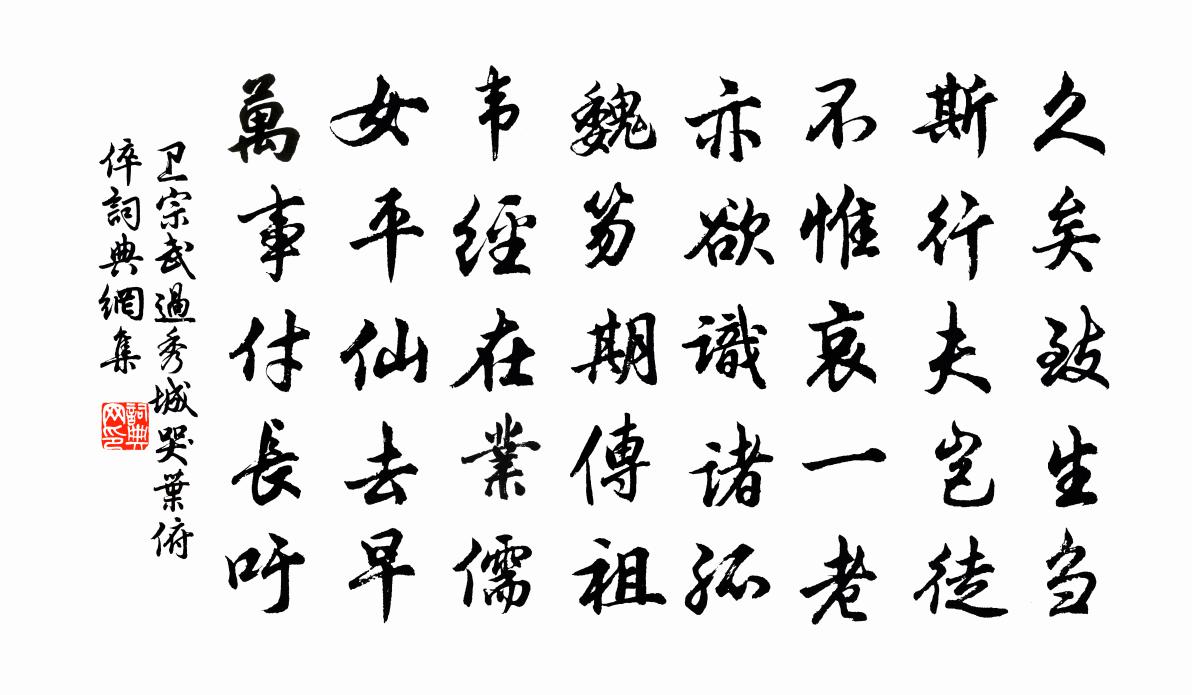 久矣致生刍
斯行夫岂徒
不惟哀一老
亦欲識諸孤
魏笏期傳祖
韦經在業儒
女平仙去早
萬事付長吁
卫宗武過秀城哭葉俯
倅詞典網集
詞典
网印